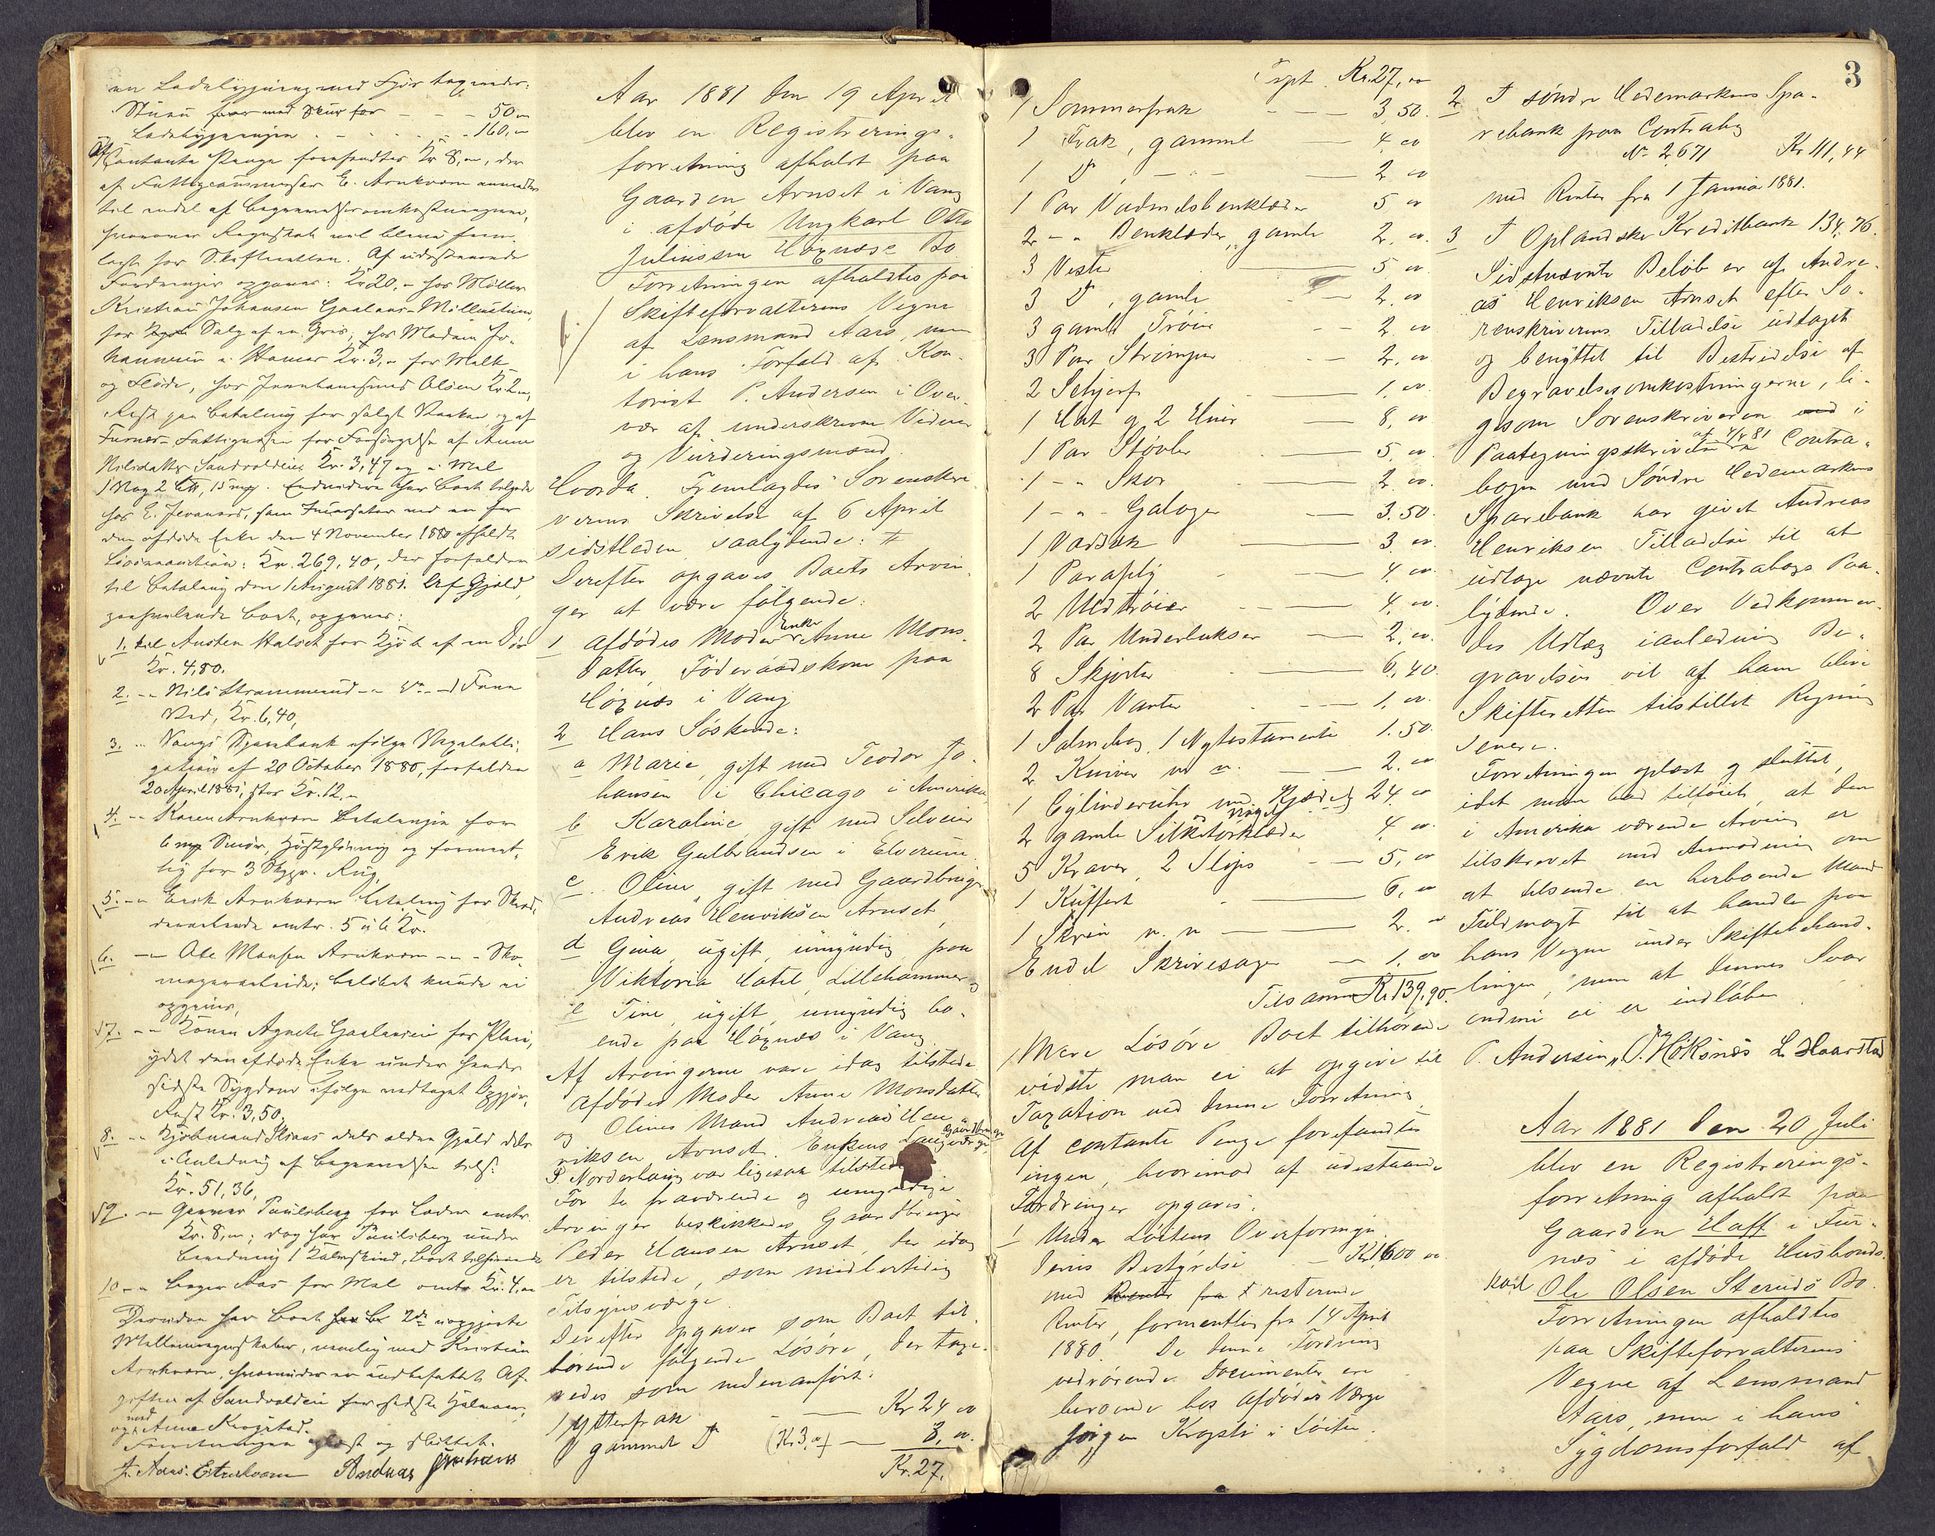 en Ladebygning med Fjøs taxeredes:
Stuen med Skur for - - - 50 "
Ladebygningen - - - - 160, "
Af Contante Penge forefandtes Kr 8, ", der
af Fattigcommissær E. Arnkværn anvendtes
til endel af Begravelsesomkostningerne,
hvorover Regnskab vil blive frem-
lagt for Skifteretten. Af udestaaende
Fordringer opgaves: Kr 20, - hos Møller
Kristian Johansen
for Salg af en Gris, hos Madam Jo-
hannesen i Hamar Kr. 3, " for Melk
og Fløde, hos Jernbanesmed Olsen Kr 2 ",
Rest paa Betaling for solgt og af
Furnes Fattigvæsen for Forsørgelse af Anne
Nilsdatter Sandvoldeie Kr. 3,47 og i Mel
1 Vog 2 15 . Endvidere har Boet tilgode
hos E. som Incassator ved en for
den afdøde Enke den 4 November 1880 afholdt
Løsøreauction: Kr. 269,40, der forfalder
til Betaling den 1 August 1881. Af Gjæld,
paahvilende Boet, opgaves:
1. til Austen Halset for Kjøb af en Dør
Kr. 4,80.
2. -- Nils Strammerud -- 1 Favn
Ved, Kr. 6,40,
3. .. Vangs Sparebank ifølge Vexelobli-
gation af 20 October 1880, forfalden
20 April 1881, stor Kr. 12, "
4. -- Karen Arnkværn Betalingen for
6 Smør, Høstpløining og forment-
lig for 3 Skpr. Rug,
5. -- Erik Arnkværn Betaling for Skred-
derarbeide omtr. 5 à 6 Kr.
6. -- Ole Monsen Arnkværn -- - Sko-
magerarbeide; beløbet kunde ei
opgives,
7. -- Konen Agnete for Pleie,
ydet den afdøde Enke under hendes
sidste Sygdom ifølge vedtaget Opgjør,
Rest Kr. 3,50.
8. -- Kjøbmand dels ældre Gjæld dels
i Anledning af Begravelsen tils.
Kr. 51,36,
9. -- Garver Paulsberg for Læder omtr.
Kr. 8, "; dog har Paulsberg under
Beredning 1 Kalveskind, Boet tilhørende
10 -- Bager Aas for Mel omtr. Kr. 4, "
Desuden har Boet 2de uopgjorte
Mellemregnskaber, nemlig med Kristian
Arnkværn, hvorunder er indbefattet Af-
giften af Sandvoldeie for sidste Halvaar,
og med Anne Krogstad.
Forretningen oplæst og sluttet.
J. Aars. E. Arnkværn Andreas Johansen
Aar 1881 den 19 April
blev en Registrerings-
forretning afholdt paa
Gaarden Arnset i Vang
i afdøde Ungkarl Otto
Juliussen Hognæs's Bo
Forretningen afholdtes paa
Skifteforvalterens Vegne
af Lensmand Aars, men
i hans Forfald af Kon-
torist P. Andersen i Over-
vær af underskrevne Vidner
og Vurderingsmænd.
Hvorda. Fremlagdes Sorenskri-
verens Skrivelse af 6 April
sidstleden saalydende: #
Derefter opgaves Boets Arvin-
ger at være følgende:
1 Afdødes Moder Enke Anne Mons-
datter, Føderaadskone paa
Hognæs i Vang
2 Hans Søskende:
a Marie, gift med Teodor Jo-
hansen i Chicago i Amerika
b Karoline gift med Selveier
Erik Gulbrandsen i Elverum
c. Oline gift med Gaardbruger
Andreas Henriksen Arnset,
d Gina ugift, umyndig, paa
Viktoria Hotel, Lillehammer og
e Tine, ugift, umyndig bo-
ende paa Hognæs i Vang.
Af Arvingerne vare idag tilstede
Afdødes Moder Anne Monsdatter
og Olines Mand Andreas Hen-
riksen Arnset. Enkens Laugværge Gaardbruger
P. Norderhaug var ligesaa tilstede
For de fraværende og umyndige
Arvinger beskikkedes Gaardbruger
Peder Hansen Arnset, der idag
er tilstede, som midlertidig
Tilsynsværge.
Derefter opgaves som Boet til-
hørende følgende Løsøre, der taxe-
redes som nedenanført:
1 Ytterfrak - - Kr 24 "
1 gammel D (Kr 3, ") - 3, "
Kr. 27,
3
Trpt. Kr. 27, "
1 Sommerfrak - - - 3,50.
1 Frak, gammel - 4, "
1 D , - " - - 2 "
1 Par Vadmelsbenklæder 5 "
2 - " Benklæder, gamle 2, "
3 Veste - 5, "
3 D , gamle - 2, "
3 gamle Trøier - - 2, "
3 Par Strømper - - 2, "
2 Schjerf - 1, "
1 Hat og 2 Huer - 8, "
1 Par Støvler - 5, "
1 - " Skor - 2 "
1 - " - Galoger - 3,50.
1 Vadsæk - 3, "
1 Paraply - 4, "
2 Uldtrøier - 4, "
2 Par Underbukser - 2, "
8 Skjorter - 6,40
2 Par Vanter - 1, "
1 Salmebog, 1 Nytestamente 1.50.
2 Kniver m. m. - 2, "
1 Cylinderuhr m. Kjæde og Nøgel 24, "
2 gamle Silketørklæder 4, "
5 Kraver, 2 Slips - 5, "
1 Kuffert - 6, "
1 Skrin m. m - 2. "
Endel Skrivesager - 1, "
Tilsammen Kr 139,90.
Mere Løsøre Boet tilhørende
vidste man ei at opgive til
Taxation ved denne Forretning
Af contante Penge forefandtes
ingen, hvorimod af udestaaende
Fordringer opgaves:
1 Under Løitens Overformyn-
deris Bestyrelse - Kr 1600 "
med resterende
Renter, formentlig fra 14 April
1880. De denne Fordring
vedrørende Documenter ere
beroende hos Afdødes Værge
Jørgen Krogsti i Løiten.
2 I søndre Hedemarkens Spa-
rebank paa Contrabog
No 2671 Kr 111,44
med Renter fra 1 Januar 1881.
3 I Oplandske Kreditbank 134,76.
Sidstnævnte Beløb er af Andre-
as Henriksen Arnset efter So-
renskriverens Tilladelse udtaget
og benyttet til Bestridelse af
Begravelsesomkostningerne, li-
gesom Sorenskriveren i
Paategningsskrivelse af 4/4 81 paa Contra-
bogen med Søndre Hedemarkens
Sparebank har givet Andreas
Henriksen Tilladelse til at
udtage nævnte Contrabogs Paa-
lydende. Over Vedkommen-
des Udlæg i anledning Be-
gravelsen vil af ham blive
Skifteretten tilstillet Regning
senere.
Forretningen oplæst og sluttet,
idet man bad tilføiet, at den
i Amerika værende Arving er
tilskrevet med Anmodning om
at tilsende en herboende Mand
Fuldmagt til at handle paa
hans Vegne under Skiftebehand-
lingen, men at dennes Svar
endnu ei er indløben.
P. Andersen, Høksnæs L. Haarstad
Aar 1881 den 20 Juli
blev en Registrerings-
forretning afholdt paa
Gaarden Haff i Fur-
næs i afdøde Husbonds-
karl Ole Olsen Steruds Bo.
Forretningen afholdtes
paa Skifteforvalterens
Vegne af Lensmand
Aars, men i hans
Sygdomsforfald af